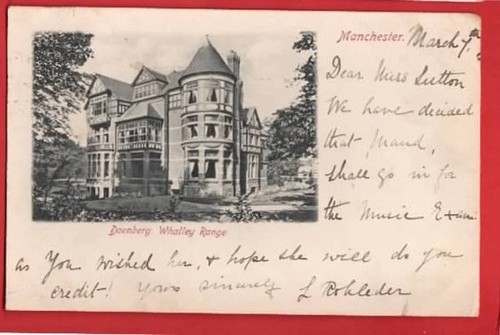 Manchester. March 7th
Dear Miss Sutton
We have decided
that Maud,
shall go in for
the Music Exam
Daenberg Whalley Range
as You wished her, & hope she will do you
credit! Yours sincerely L Rohleder